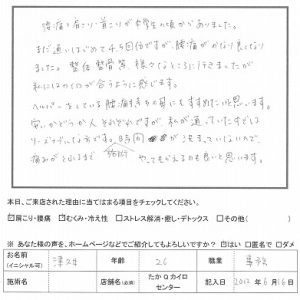 腰痛と肩こり、首こりが中学生の頃からありました。
まだ通いはじめて4、5回目ですが、腰痛がかなり良くなり
ました。整体、整骨等、様々なところに行きましたが
私にはこの が合うように感じます。
ヘルパーをしている腰痛もちの母にもすすめたいと思います。
安いかどうか人それぞれですが、私が通っていた
リーズナブルな方です。時間 がうまっていないので、
痛みがとれるまで やってもらえるのも良いと思います。
本日、ご来店された理由に当てはまる項目をチェックしてください。
☑肩こり・腰痛 ☑むくみ・冷え性 □ストレス解消・癒し・デトックス □その他( )
※ あなた様の声を、ホームページなどでご紹介してもよろしいですか? ☑はい □匿名で □ダメ
お名前 (イニシャル可) 年齢 26 職業
施術名 店舗名(必須) たかQカイロセンター 記入日 2012年6月16日